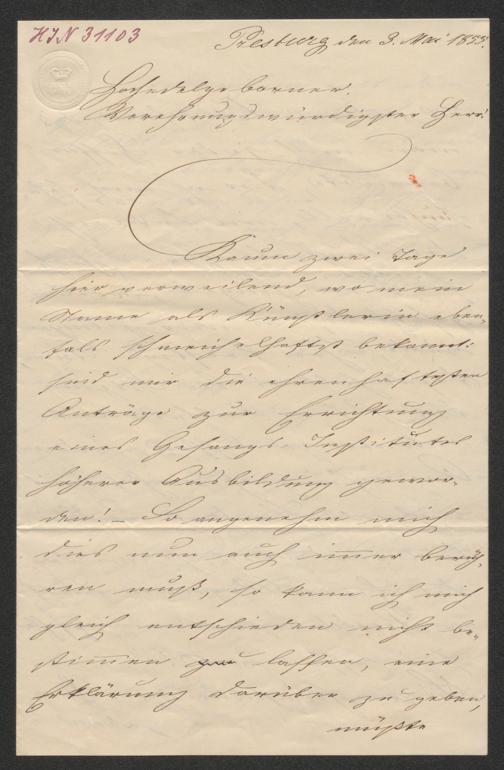 HIN 31103
Presburg den 3. Mai 1855.
Hochedelgeborner.
Verehrungswürdigster Herr!
Kaum zwei Tage
hier verweilend, wo mein
Name als Künstlerin eben-
falls schmeichelhaftst bekannt:
sind mir die ehrenhaftesten
Anträge zur Errichtung
eines Gesangs-Institutes
höherer Ausbildung gewor-
den! – So angenehm mich
dies nun auch immer berüh-
ren muß, so kann ich mich
gleich entschieden nicht be-
stimmen lassen, eine
Erklärung darüber zu geben,
müßte